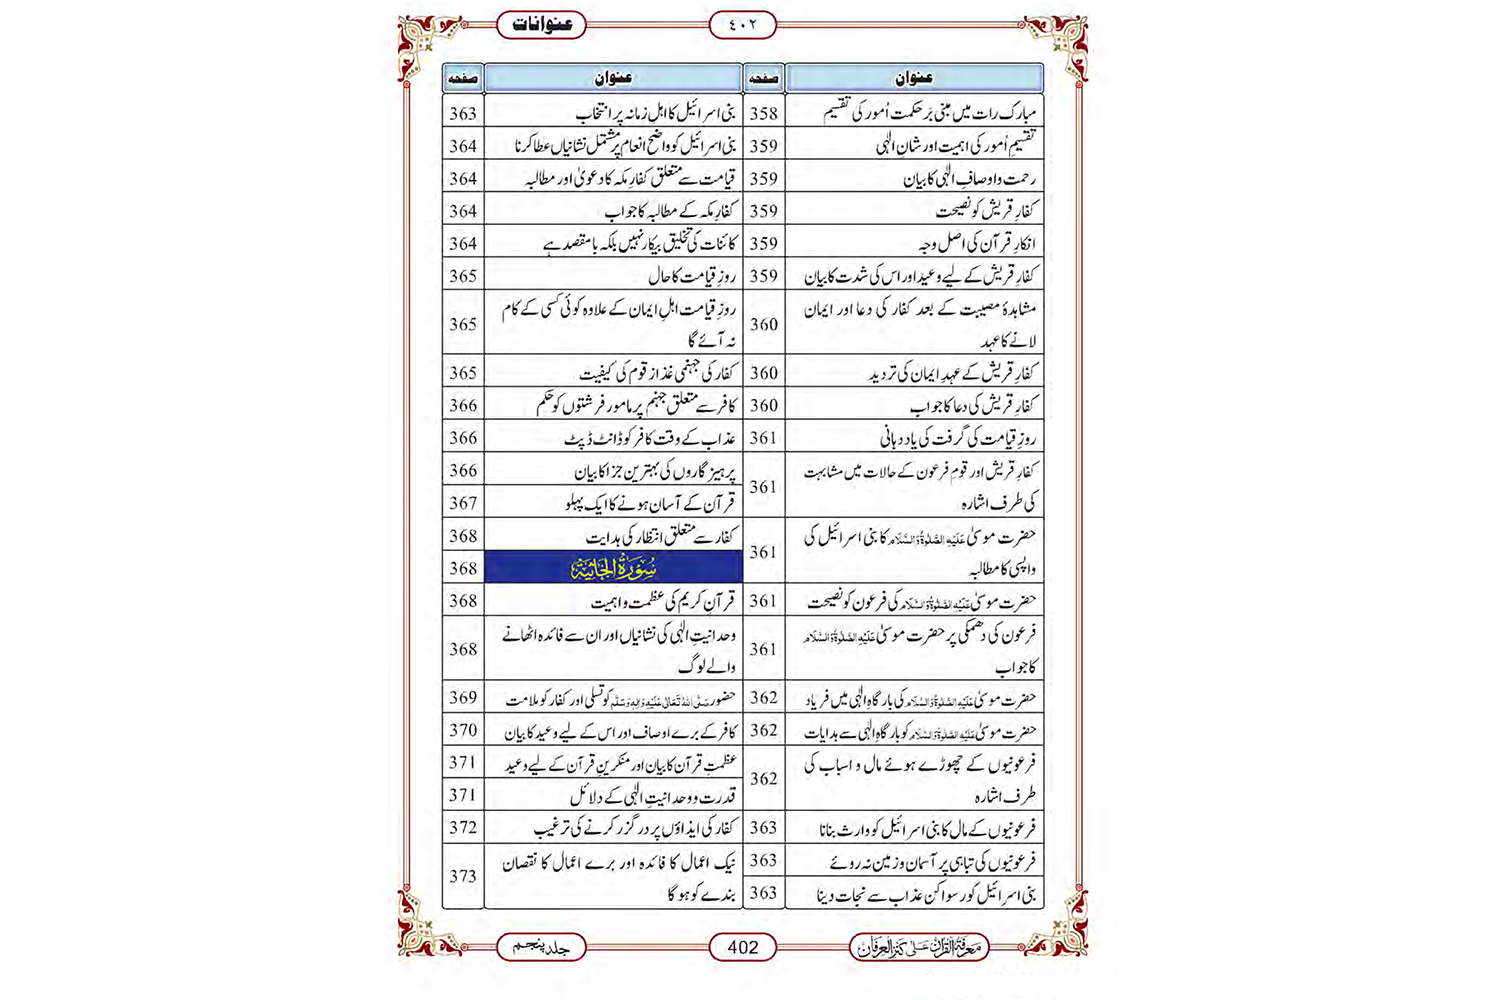 عنوانات
٤٠٢
عنوان صفحہ
مبارک رات میں مبنی بَر حکمت اُمور کی تقسیم 358
تقسیمِ اُمور کی اہمیت اور شانِ الٰہی 359
رحمت و اوصافِ الٰہی کا بیان 359
کفارِ قریش کو نصیحت 359
انکارِ قرآن کی اصل وجہ 359
کفارِ قریش کے لیے وعید اور اس کی شدت کا بیان 359
مشاہدۂ مصیبت کے بعد کفار کی دعا اور ایمان
لانے کا عہد 360
کفارِ قریش کے عہدِ ایمان کی تردید 360
کفارِ قریش کی دعا کا جواب 360
روزِ قیامت کی گرفت کی یاد دہانی 361
کفارِ قریش اور قومِ فرعون کے حالات میں مشابہت
کی طرف اشارہ 361
حضرت موسیٰ عَلَیْہِ الصَّلٰوۃُ وَالسَّلَام کا بنی اسرائیل کی
واپسی کا مطالبہ 361
حضرت موسیٰ عَلَیْہِ الصَّلٰوۃُ وَالسَّلَام کی فرعون کو نصیحت 361
فرعون کی دھمکی پر حضرت موسیٰ عَلَیْہِ الصَّلٰوۃُ وَالسَّلَام
کا جواب 361
حضرت موسیٰ عَلَیْہِ الصَّلٰوۃُ وَالسَّلَام کی بارگاہِ الٰہی میں فریاد 362
حضرت موسیٰ عَلَیْہِ الصَّلٰوۃُ وَالسَّلَام کو بارگاہِ الٰہی سے ہدایات 362
فرعونیوں کے چھوڑے ہوئے مال و اسباب کی
طرف اشارہ 362
فرعونیوں کے مال کا بنی اسرائیل کو وارث بنانا 363
فرعونیوں کی تباہی پر آسمان و زمین نہ روئے 363
بنی اسرائیل کو رسوا کن عذاب سے نجات دینا 363
عنوان صفحہ
بنی اسرائیل کا اہلِ زمانہ پر انتخاب 363
بنی اسرائیل کو واضح انعام پر مشتمل نشانیاں عطا کرنا 364
قیامت سے متعلق کفارِ مکہ کا دعویٰ اور مطالبہ 364
کفارِ مکہ کے مطالبہ کا جواب 364
کائنات کی تخلیق بیکار نہیں بلکہ با مقصد ہے 364
روزِ قیامت کا حال 365
روزِ قیامت اہلِ ایمان کے علاوہ کوئی کسی کے کام
نہ آئے گا 365
کفار کی جہنمی غذا زقوم کی کیفیت 365
کافر سے متعلق جہنم پر مامور فرشتوں کو حکم 366
عذاب کے وقت کافر کو ڈانٹ ڈپٹ 366
پرہیز گاروں کی بہترین جزا کا بیان 366
قرآن کے آسان ہونے کا ایک پہلو 367
کفار سے متعلق انتظار کی ہدایت 368
سُوْرَةُ الْجَاثِيَة 368
قرآنِ کریم کی عظمت و اہمیت 368
وحدانیتِ الٰہی کی نشانیاں اور ان سے فائدہ اٹھانے
والے لوگ 368
حضور صَلَّی اللہُ تَعَالٰی عَلَیْہِ وَاٰلِہٖ وَسَلَّم کو تسلی اور کفار کو ملامت 369
کافر کے برے اوصاف اور اس کے لیے وعید کا بیان 370
عظمتِ قرآن کا بیان اور منکرینِ قرآن کے لیے وعید 371
قدرت و وحدانیتِ الٰہی کے دلائل 371
کفار کی ایذاؤں پر درگزر کرنے کی ترغیب 372
نیک اعمال کا فائدہ اور برے اعمال کا نقصان
بندے کو ہو گا 373
معرفۃ القرآن علی کنز العرفان
402
جلد پنجم